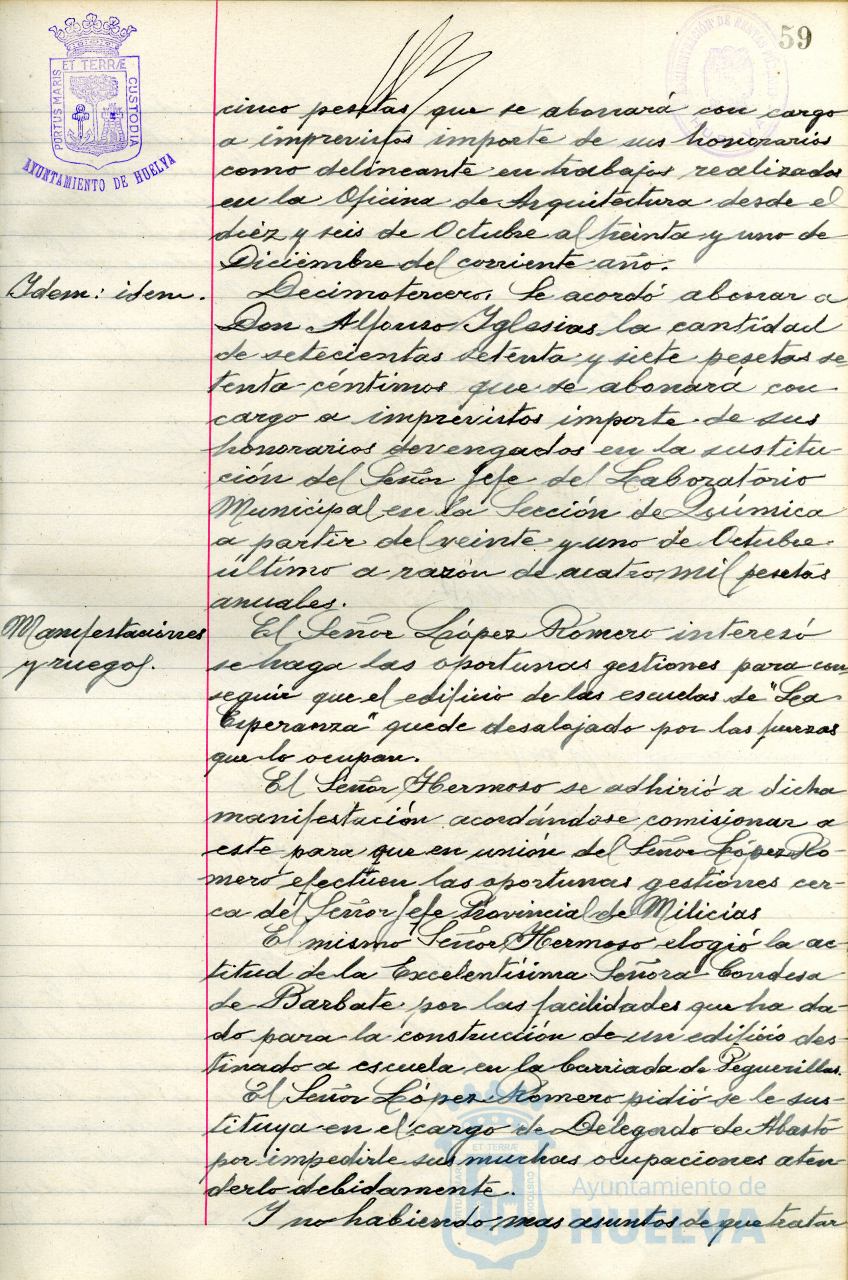 59
ET TERRÆ
PORTUS MARIS
CUSTODIA
AYUNTAMIENTO DE HUELVA
cinco pesetas que se abonará con cargo
a imprevistos importe de sus honorarios
como delineante en trabajos realizados
en la Oficina de Arquitectura desde el
diéz y seis de Octubre al treinta y uno de
Diciembre del corriente año.
Idem: idem.
Decimotercero. Se acordó abonar a
Don Alfonso Iglesias la cantidad
de setecientas setenta y siete pesetas se-
tenta céntimos que se abonará con
cargo a imprevistos importe de sus
honorarios devengados en la sustitu-
ción del Señor Jefe del Laboratorio
Municipal en la Sección de Química
a partir del veinte y uno de Octubre
último a razón de cuatro mil pesetas
anuales.
Manifestaciones
y ruegos.
El Señor López Romero interesó
se haga las oportunas gestiones para con-
seguir que el edificio de las escuelas de "La
Esperanza" quede desalojado por las fuerzas
que lo ocupan.
El Señor Hermoso se adhirió a dicha
manifestación acordándose comisionar a
este para que en unión del Señor López Ro-
mero efectúen las oportunas gestiones cer-
ca del Señor Jefe Provincial de Milicias
El mismo Señor Hermoso elogió la ac-
titud de la Excelentísima Señora Condesa
de Barbate por las facilidades que ha da-
do para la construcción de un edificio des-
tinado a escuela en la barriada de Peguerillas.
El Señor López Romero pidió se le sus-
tituya en el cargo de Delegado de Abasto
por impedirle sus muchas ocupaciones aten-
derlo debidamente.
Y no habiendo mas asuntos de que tratar
Ayuntamiento de
HUELVA